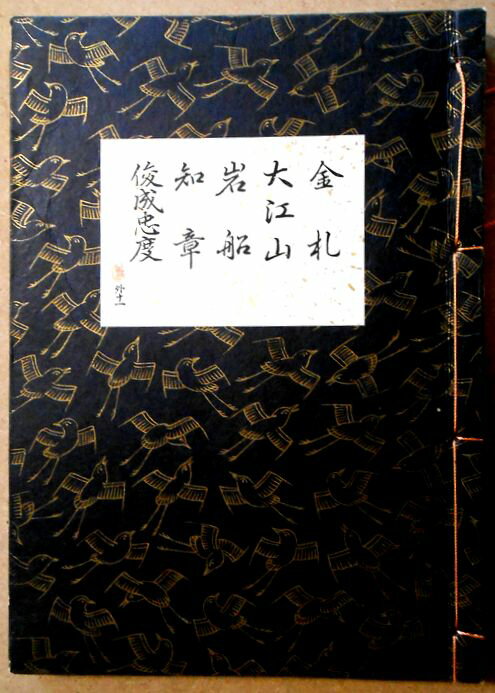 金札
大江山
岩船
知章
俊成忠度
外十一